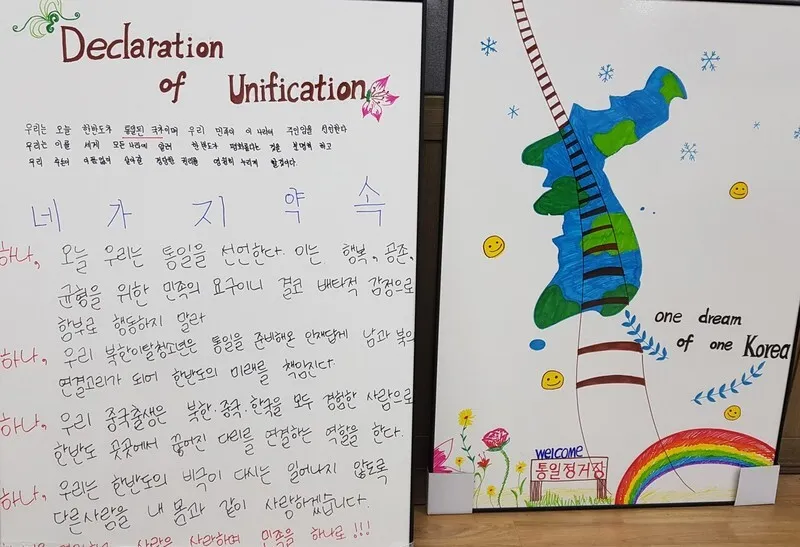 Declaration
of Unification
우리는 오늘 한반도가 통일된 국가이며 우리 민족이 이 나라의 주인임을 선언한다
우리는 이를 세계 모든 나라에 알려 한반도가 평화롭다는 것을 분명히 하고
우리 후손이 어려움없이 살아갈 정당한 권리를 영원히 누리게 할것이다.
네 가 지 약 속
하나, 오늘 우리는 통일을 선언한다. 이는 행복, 공존,
균형을 위한 민족의 요구이니 결코 배타적 감정으로
함부로 행동하지 말라
하나, 우리 북한이탈청소년은 통일을 준비해온 인재답게 남과 북의
연결고리가 되어 한반도의 미래를 책임진다.
하나, 우리 중국출생은 북한·중국·한국을 모두 경험한 사람으로
한반도 곳곳에서 끊어진 다리를 연결하는 역할을 한다.
하나, 우리는 한반도의 비극이 다시는 일어나지 않도록
다른사람을 내 몸과 같이 사랑하겠습니다.
사람을 사랑하며 민족을 하나로!!!
one dream
of one Korea
welcome
통일정거장